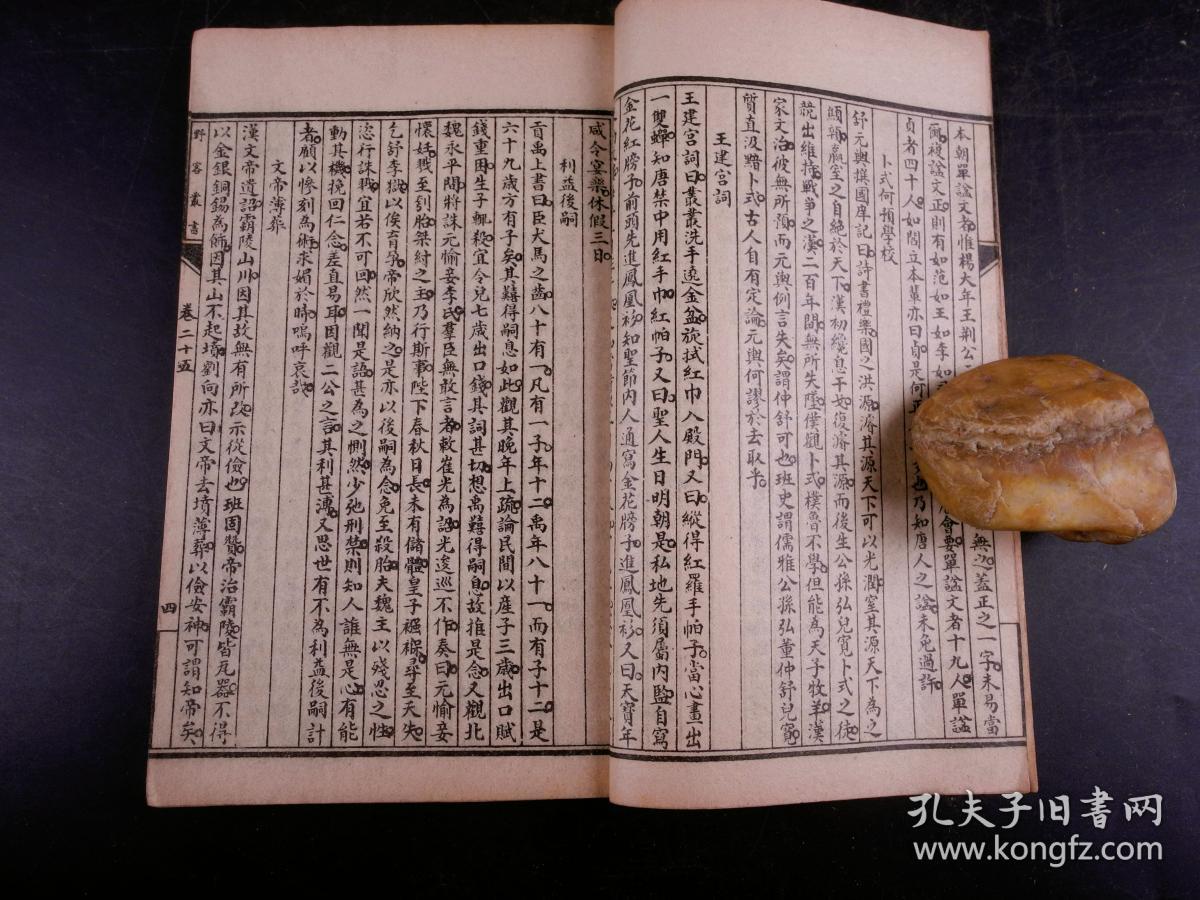 本朝單諡文者惟楊大年王荊公
無之蓋正之一字未易當
複諡文正則有如范如王如李如司
會要單諡文者十九人單諡
貞者四十人如閻立本輩亦曰貞是何正
也乃知唐人之諡未免過許
卜式何預學校
舒元輿撰國庠記曰詩書禮樂國之洪源濬其源天下可以光潤窒其源天下為之
顦顇嬴室之自絕於天下漢初纔息干戈復濬其源而後生公孫弘兒寬卜式之徒
競出維持戰爭之漢二百年間無所失墜僕觀卜式樸魯不學但能為天子牧羊漢
家文治彼無所預而元輿例言失矣謂仲舒可也班史謂儒雅公孫弘董仲舒兒寬
質直汲黯卜式古人自有定論元輿何謬於去取乎
王建宮詞
王建宮詞曰叢叢洗手遶金盆旋拭紅巾入殿門又曰縱得紅羅手帕子當心畫出
一雙蟬知唐禁中用紅手巾紅帕子又曰聖人生日明朝是私地先須屬內監自寫
金花紅牓子前頭先進鳳凰衫知聖節內人通寫金花牓子進鳳凰衫又曰天寶年
咸令宴樂休假三日
利益後嗣
貢禹上書曰臣犬馬之齒八十有一凡有一子年十二禹年八十一而有子十二是
六十九歲方有子矣其難得嗣息如此觀其晚年上疏論民間以產子三歲出口賦
錢重困生子輒殺宜令兒七歲出口錢其詞甚切想禹難得嗣息故推是念又觀北
魏永平間將誅元愉妾李氏羣臣無敢言者敕崔光為詔光逡巡不作奏曰元愉妾
懷妊戮至刳胎桀紂之主乃行斯事陛下春秋日長未有儲體皇子襁褓尋至夭失
乞舒李獄以俟育孕帝欣然納之是亦以後嗣為念免至殺胎夫魏主以殘忍之性
恣行誅戮宜若不可回然一聞是語甚為之惻然少弛刑禁則知人誰無是心有能
動其機挽回仁念差直易耳因觀二公之言其利甚溥又思世有不為利益後嗣計
者顧以慘刻為術求媚於時嗚呼哀哉
文帝薄葬
漢文帝遺詔霸陵山川因其故無有所改示從儉也班固贊帝治霸陵皆瓦器不得
以金銀銅錫為飾因其山不起墳劉向亦曰文帝去墳薄葬以儉安神可謂知帝矣
野客叢書
卷二十五
四
孔夫子旧书网
www.kongfz.com